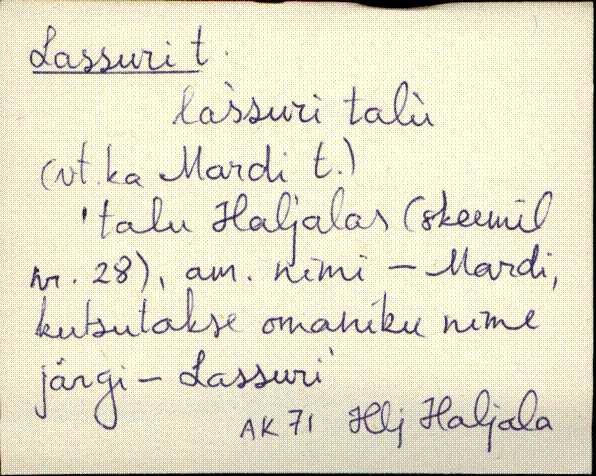 Lassuri t.
la`ssuri talu
(vt. ka Mardi t.)
'talu Haljalas (skeemil
nr. 28), am. nimi – Mardi,
kutsutakse omaniku nime
järgi – Lassuri'
AK 71 Hlj Haljala